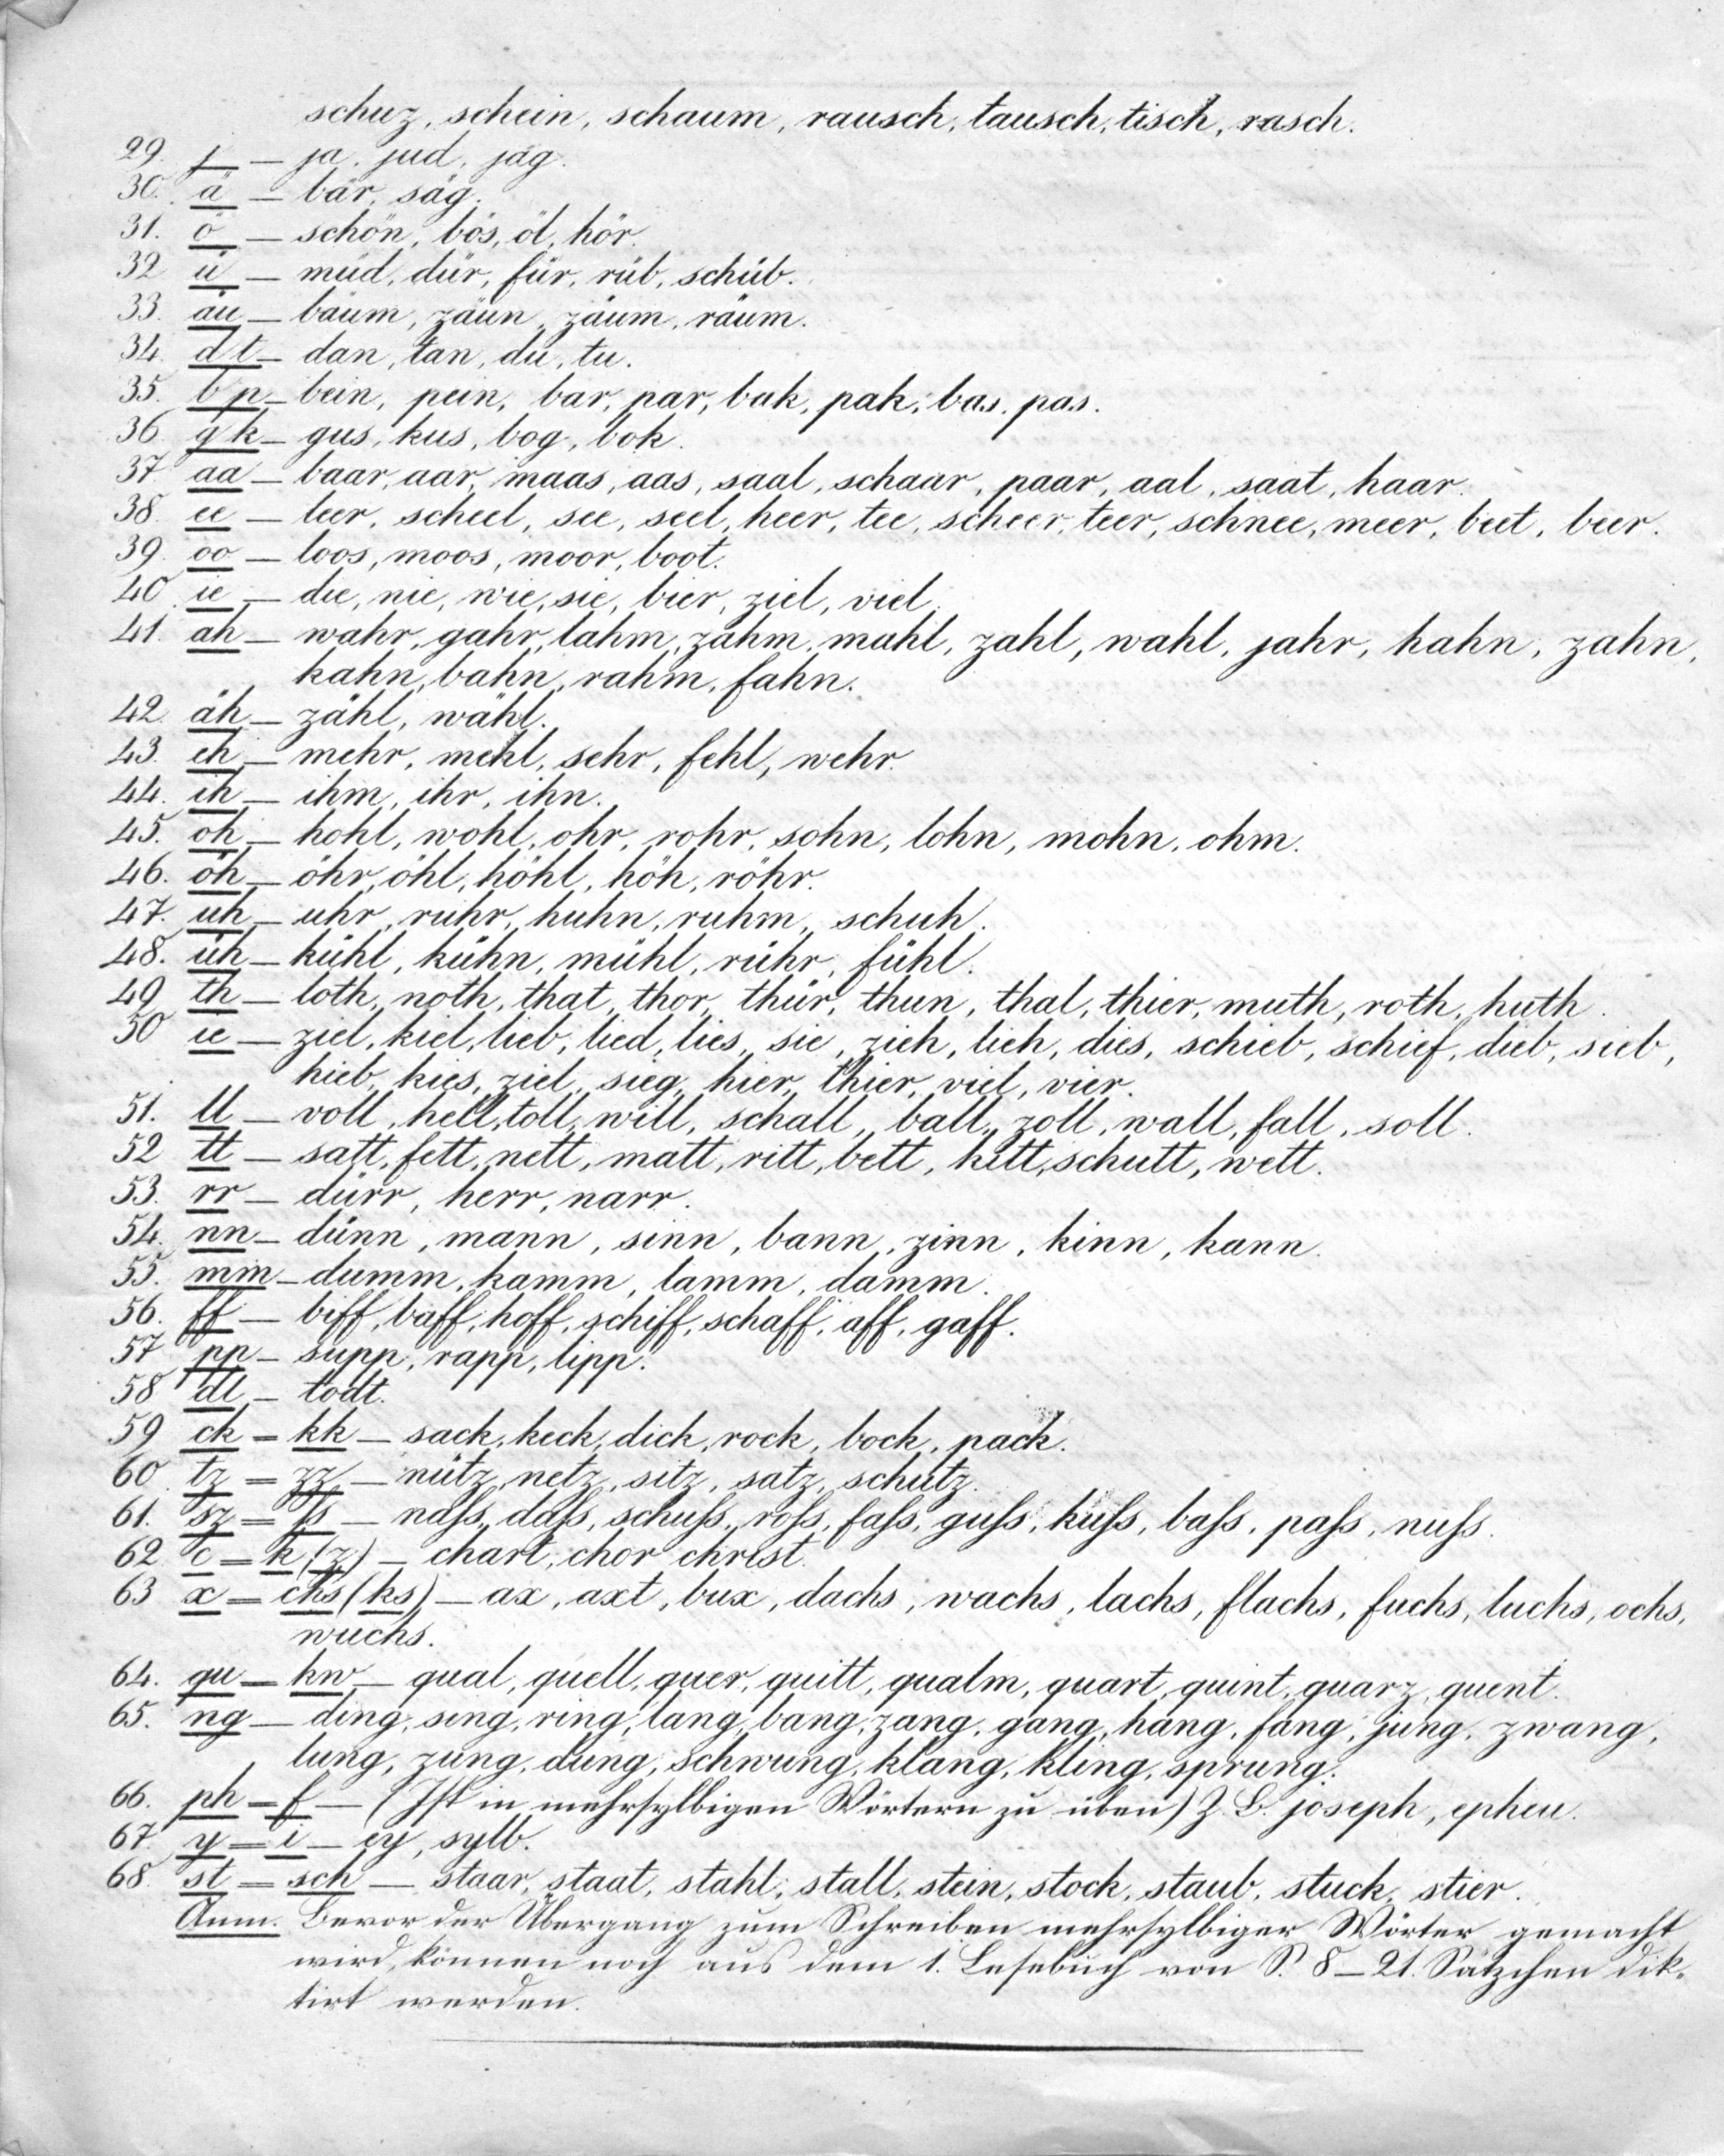 schuz, schein, schaum, rausch, tausch, tisch, rasch.
29. j — ja, jud, jäg.
30. ä — bär, säg.
31. ö — schön, bös, öl, hör.
32 ü — müd, dür, für, rüb, schüb.
33. äu — bäum, zäun, zäum, räum.
34. d t — dan, tan, du, tu.
35. b p — bein, pein, bar, par, bak, pak, bas, pas.
36 g k — gus, kus, bog, bok.
37 aa — baar, aar, maas, aas, saal, schaar, paar, aal, saat, haar.
38. ee — leer, scheel, see, seel, heer, tee, scheer, teer, schnee, meer, beet, beer.
39. oo — loos, moos, moor, boot.
40 ie — die, nie, wie, sie, bier, ziel, viel.
41. ah — wahr, gahr, lahm, zahm, mahl, zahl, wahl, jahr, hahn, zahn,
kahn, bahn, rahm, fahn.
42. äh — zähl, wähl.
43. eh — mehr, mehl, sehr, fehl, wehr.
44. ih — ihm, ihr, ihn.
45. oh — hohl, wohl, ohr, rohr, sohn, lohn, mohn, ohm.
46. öh — öhr, öhl, höhl, höh, röhr.
47. uh — uhr, ruhr, huhn, ruhm, schuh.
48. üh — kühl, kühn, mühl, rühr, fühl.
49 th — loth, noth, that, thor, thür, thun, thal, thier, muth, roth, huth.
50 ie — ziel, kiel, lieb, lied, lies, sie, zieh, lieh, dies, schieb, schief, dieb, sieb,
hieb, kies, ziel, sieg, hier, thier, viel, vier.
51. ll — voll, hell, toll, will, schall, ball, zoll, wall, fall, soll.
52 tt — satt, fett, nett, matt, ritt, bett, kett, schutt, wett.
53. rr — dürr, herr, narr.
54. nn — dünn, mann, sinn, bann, zinn, kinn, kann.
55. mm — dumm, kamm, lamm, damm.
56. ff — biff, baff, hoff, schiff, schaff, aff, gaff.
57 pp — supp, rapp, lipp.
58 dt — todt.
59 ck = kk — sack, keck, dick, rock, bock, pack.
60 tz = zz — nütz, netz, sitz, satz, schutz.
61. sz = ſs — naſs, daſs, schuſs, roſs, faſs, guſs, kuſs, baſs, paſs, nuſs.
62 c = k (z) — chart, chor christ.
63 x = chs (ks) — ax, axt, bux, dachs, wachs, lachs, flachs, fuchs, luchs, ochs,
wuchs.
64. qu = kw — qual, quell, quer, quitt, qualm, quart, quint, quarz, quent.
65. ng — ding, sing, ring, lang, bang, zang, gang, hang, fang, jung, zwang,
lung, zung, dung, schwung, klang, kling, sprung.
66. ph = f — (Ist in mehrsylbigen Wörtern zu üben) Z. B. joseph, epheu.
67. y = i — ey, sylb.
68. st = sch — staar, staat, stahl, stall, stein, stock, staub, stuck, stier.
Anm. Bevor der Übergang zum Schreiben mehrsylbiger Wörter gemacht
wird, können noch aus dem 1. Lesebuch von S. 8–21. Sätzchen dik-
tirt werden.